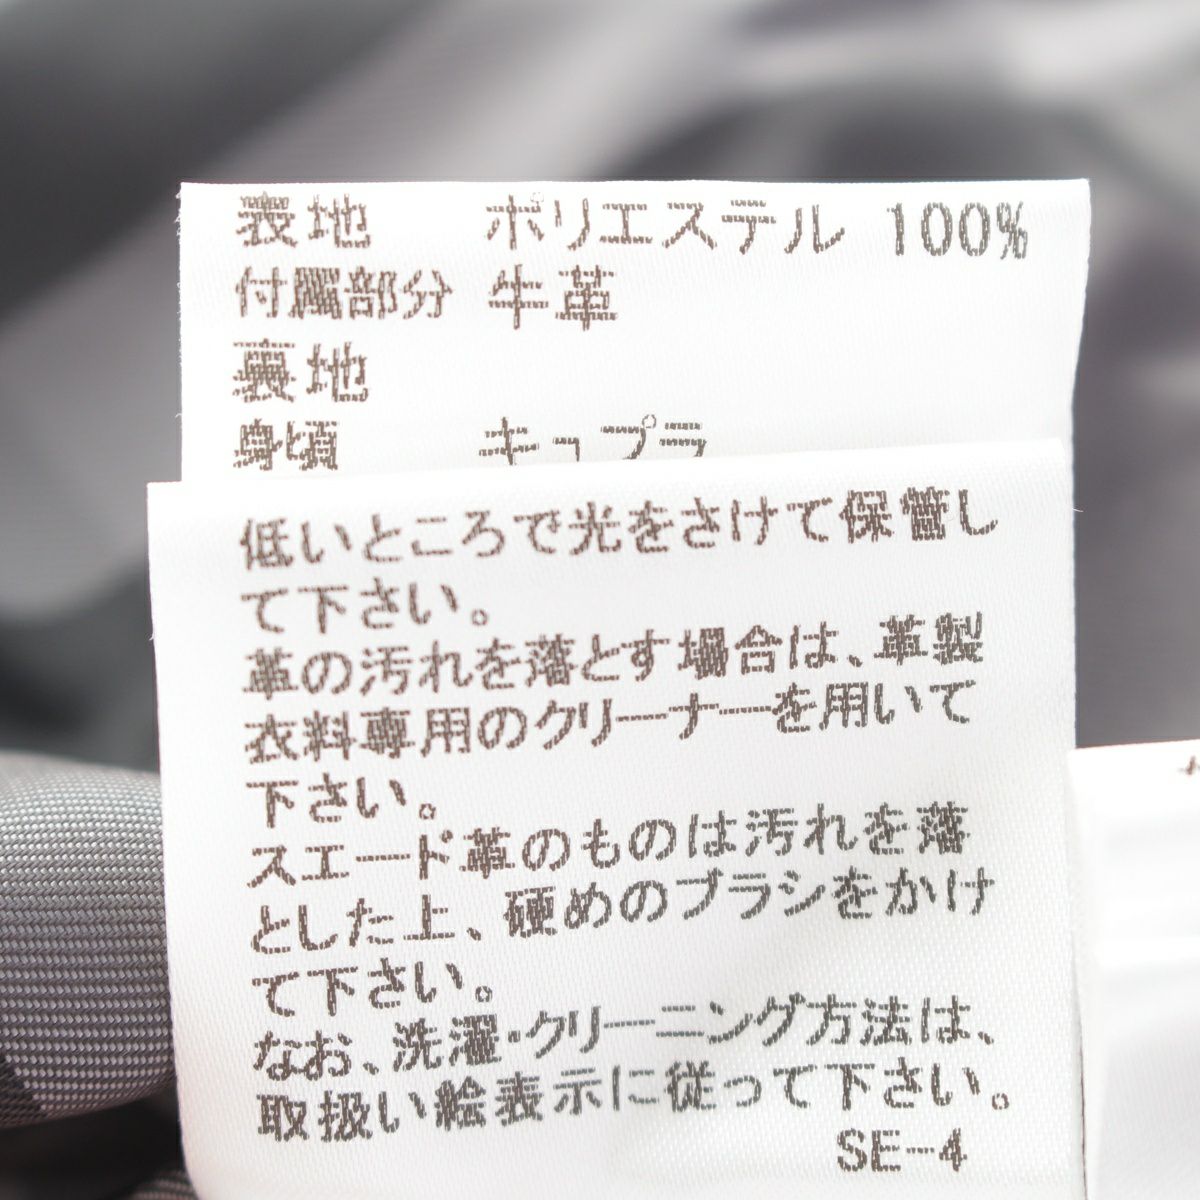 表地 ポリエステル 100%
付属部分 牛革
裏地
身頃 キュプラ
低いところで光をさけて保管し
て下さい。
革の汚れを落とす場合は、革製
衣料専用のクリーナーを用いて
下さい。
スエード革のものは汚れを落
とした上、硬めのブラシをかけ
て下さい。
なお、洗濯・クリーニング方法は、
取扱い絵表示に従って下さい。
SE-4